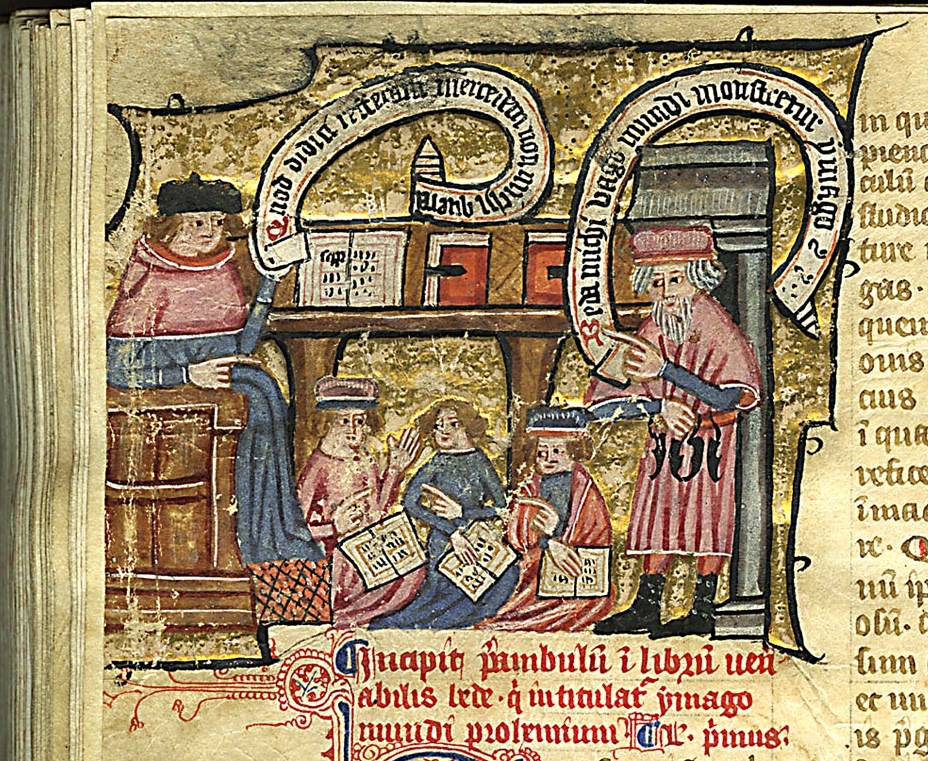 Quod didici mercedem non queram
Beda michi vago mundi monstretur ymago
Incipit p̄ambulū ī librū uen
abilis bede · q̇ intitulat ymago
mundi prohemium p̄mus·
in qu
pienc
culū
studio
ture
gas·
quem
ouis
cius
ī qua
refice
re·
nū ip
sim
et un
is